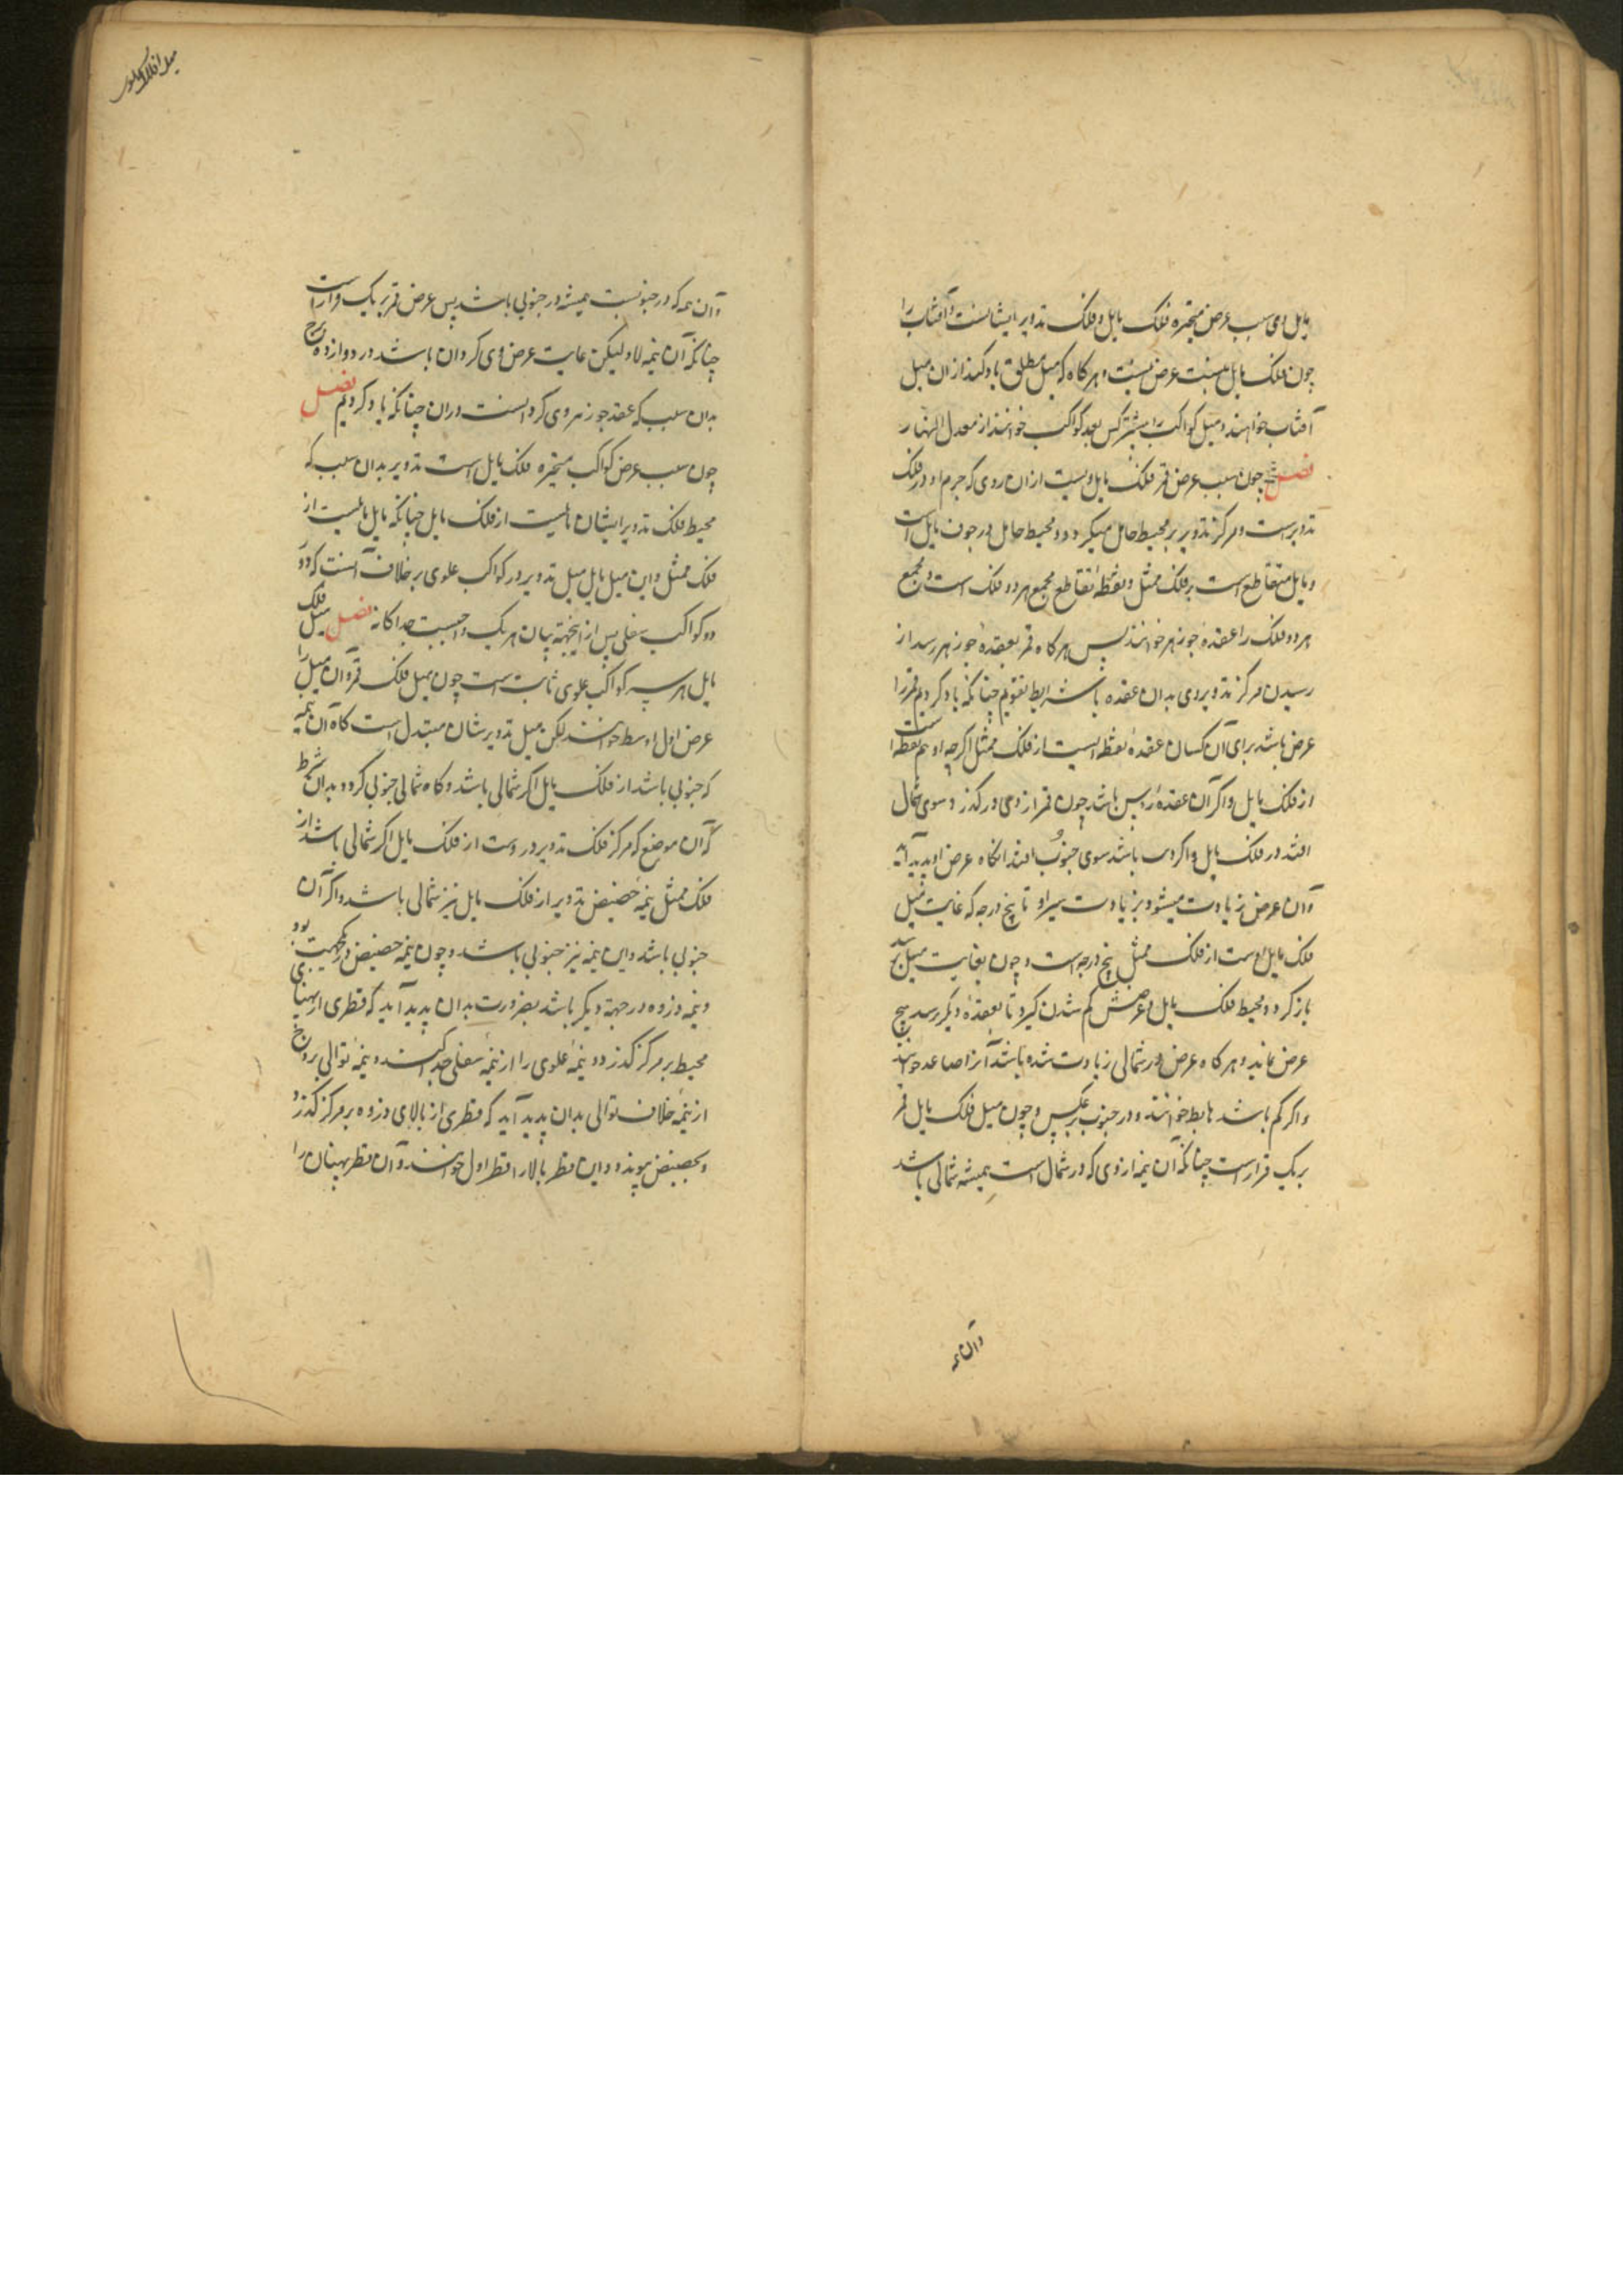 مایل وی سبب عرض متحیره فلک مایل و فلک تدویر ایشانست و آفتاب را
چون فلک مایل نیست عرض نیست و هر کاه که میل مطلق یاد کنند از ان میل
آفتاب خواهند و میل کواکب را بیشتر کس بعد کواکب خوانند از معدل النهار
فصل چون سبب عرض قمر فلک مایل ویست از ان روی که جرم او در فلک
تدویرست و مرکز تدویر بر محیط حامل میکردد و محیط حامل در جون مایل است
و مایل متقاطع است بر فلک ممثل و نقطهٔ تقاطع مجمع هر دو فلک است و مجمع
هر دو فلک را عقدهٔ جوزهر خوانند پس هر کاه قمر بعقدهٔ جوزهر رسد از
رسیدن مرکز تدویر وی بدان عقده با شرایط تقویم چنانکه یاد کردیم قمر را
عرض باشد برای آن کسان عقده نقطه ایست از فلک ممثل اکرچه او هم نقطه است
از فلک مایل و اکر آن عقدهٔ راس باشد چون قمر از وی درکذرد سوی شمال
افتد در فلک مایل و اکر باشد سوی جنوب افتد انکاه عرض او پدید آید
و آن عرض زیادت میشود بزیادت سیر او تا پنج درجه که غایت میل
فلک مایل اوست از فلک ممثل پنج درجه است و چون بغایت میل رسد
باز کردد و محیط فلک مایل و عرضش کم شدن کیرد تا بعقدهٔ دیکر رسد هیچ
عرض نماند و هر کاه عرض در شمالی زیادت شده باشد آنرا صاعد خوانند
و اکر کم باشد هابط خوانند و در جنوب برعکس و چون میل فلک مایل قمر
بر یک قرارست چنانکه آن نیمه از وی که در شمال است همیشه شمالی باشد
وآن نیمه
وآن نیمه که در جنوبست همیشه در جنوبی باشد پس عرض قمر بر یک قرار است
چنانکه آن نیمه لیکن غایت عرض وی کردان باشد در دوازده برج
بدان سبب که عقد جوزهر وی کردانست دران چنانکه یاد کردیم فصل
چون سبب عرض کواکب متحیره فلک مایل است تدویر بدان سبب که
محیط فلک تدویر ایشان مایلست از فلک مایل چنانکه مایل مایلست از
فلک ممثل و این میل مایل میل تدویر در کواکب علوی بر خلاف آنست که در
دو کواکب سفلی پس از اینجهة بیان هر یک واجبست جداکانه فصل میل فلک
مایل هر سه کواکب علوی ثابت است چون میل فلک قمر و آن میل را
عرض اول اوسط خوانند لکن میل تدویرشان متبدل است کاه آن نیمه
که جنوبی باشد از فلک مایل اکر شمالی باشد و کاه شمالی جنوبی کردد بدان شرط
که آن موضع که مرکز فلک تدویر دروست از فلک مایل اکر شمالی باشد از
فلک ممثل نیمه حضیض تدویر از فلک مایل نیز شمالی باشد و اکر آن
جنوبی باشد و این نیمه نیز جنوبی باشد و چون نیمه حضیض در یکجهت بود
و نیمه ذروه در جهة دیکر باشد بضرورت بدان پدید آید که قطری از پهنای
محیط بر مرکز کذرد و نیمهٔ علوی را از نیمهٔ سفلی جدا کند و نیمهٔ توالی بروج
از نیمهٔ خلاف توالی بدان پدید آید که قطری از بالای ذروه بر مرکز کذرد
و بحضیض پیوندد و این قطر بالا را قطر اول خوانند و آن قطر پهنان را